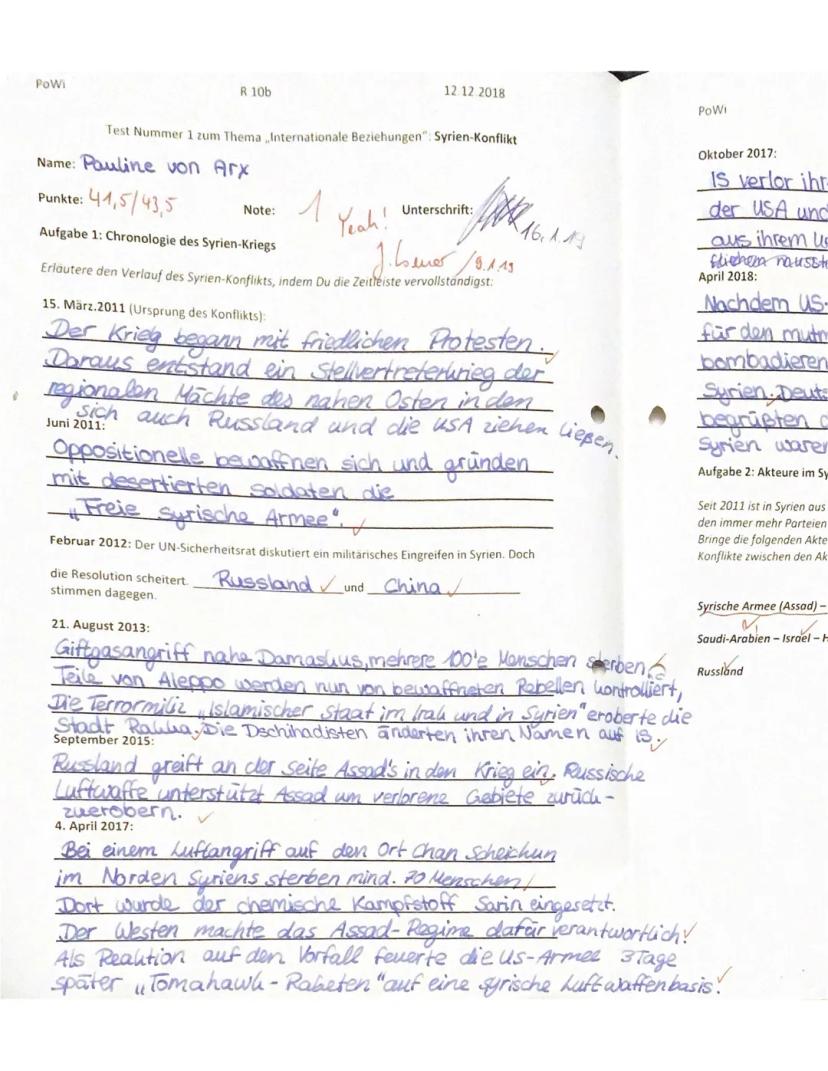 PoWi
R 10b
12.12.2018
Test Nummer 1 zum Thema „Internationale Beziehungen": Syrien-Konflikt
Name: Pauline von Arx
Punkte: 41,5/43,5
Note: 1 Yeah!
Unterschrift:
16.1.19
9.1.19
Aufgabe 1: Chronologie des Syrien-Kriegs
Erläutere den Verlauf des Syrien-Konflikts, indem Du die Zeitleiste vervollständigst:
15. März.2011 (Ursprung des Konflikts):
Der Krieg begann mit friedlichen Protesten.
Daraus entstand ein Stellvertreterkrieg der
regionalen Mächte des nahen Osten in den
sich auch Russland und die USA ziehen ließen.
Juni 2011:
Oppositionelle bewaffnen sich und gründen
mit desertierten soldaten die
„Freie syrische Armee".
Februar 2012: Der UN-Sicherheitsrat diskutiert ein militärisches Eingreifen in Syrien. Doch
die Resolution scheitert. Russland und China
stimmen dagegen.
21. August 2013:
Giftgasangriff nahe Damaskus, mehrere 100'e Menschen sterben.
Teile von Aleppo werden nun von bewaffneten Rebellen kontrolliert,
Die Terrormiliz „Islamischer Staat im Irak und in Syrien" eroberte die
Stadt Rakka. Die Dschihadisten änderten ihren Namen auf IS.
September 2015:
Russland greift an der seite Assad's in den Krieg ein. Russische
Luftwaffe unterstützt Assad um verlorene Gebiete zurück-
zuerobern.
4. April 2017:
Bei einem Luftangriff auf den Ort Chan Scheichun
im Norden Syriens sterben mind. 70 Menschen
Dort wurde der chemische Kampfstoff Sarin eingesetzt.
Der Westen machte das Assad-Regime dafür verantwortlich.
Als Reaktion auf den Vorfall feuerte die US-Armee 3 Tage
später „Tomahawk-Raketen" auf eine syrische Luftwaffenbasis.
PoWi
Oktober 2017:
IS verlor ihr
der USA und
aus ihrem
April 2018:
Nachdem US-
für den mutm
bombadieren
Syrien. Deuts
begrüßten d
Syrien waren
Aufgabe 2: Akteure im Sy
Seit 2011 ist in Syrien aus
den immer mehr Parteien
Bringe die folgenden Akte
Konflikte zwischen den Ak
Syrische Armee (Assad) –
Saudi-Arabien – Israel – H
Russland